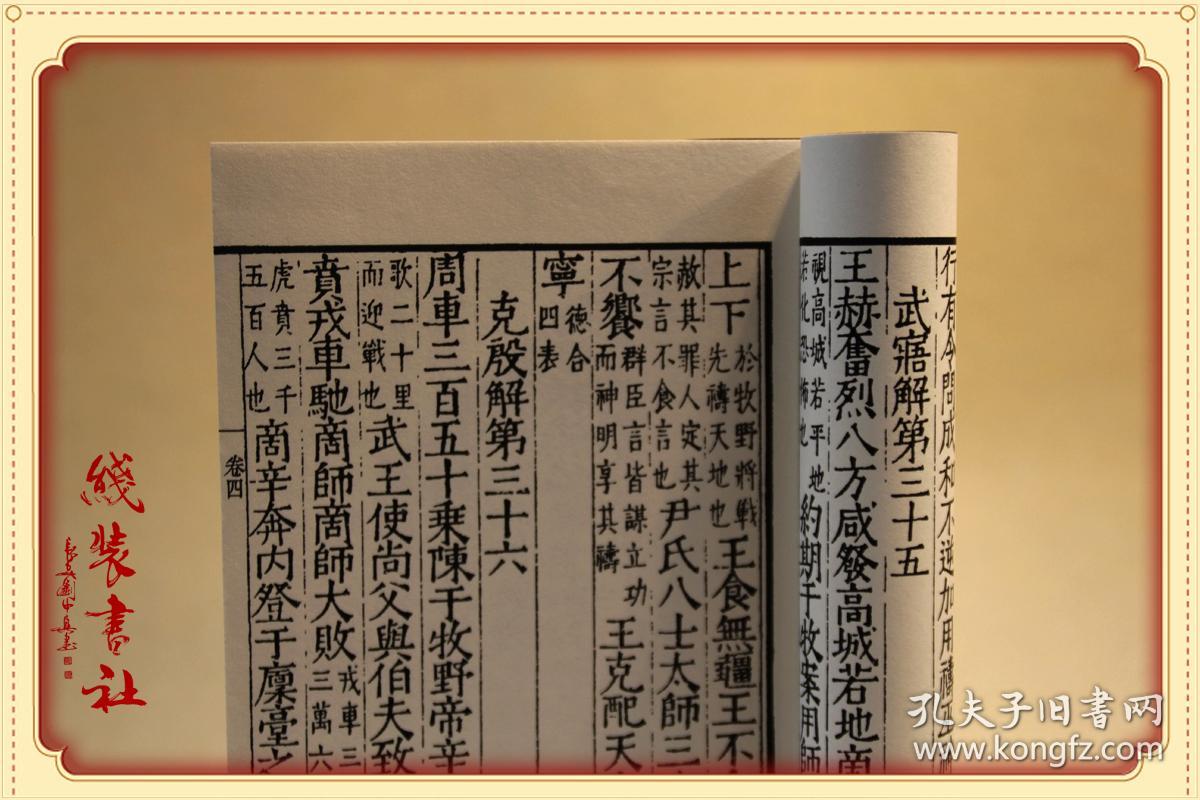 行有令問成和不逆加用禱巫
武寤解第三十五
王赫奮烈八方咸發高城若地商
視高城若平地
若化恐怖也
約期于牧案用師
上下
於牧野將戰
先禱天地也
王食無疆王不
赦其罪人定其
宗言不食言也
尹氏八士太師三
不饗
群臣言皆謀立功
而神明享其禱
王克配天
寧
德合
四表
克殷解第三十六
周車三百五十乘陳于牧野帝辛
歌二十里
而迎戰也
武王使尚父與伯夫致
賁戎車馳商師商師大敗
戎車三
三萬六
虎賁三千
五百人也
商辛奔内登于廩臺之
卷四
綫装書社
孔夫子旧書网
www.kongfz.com